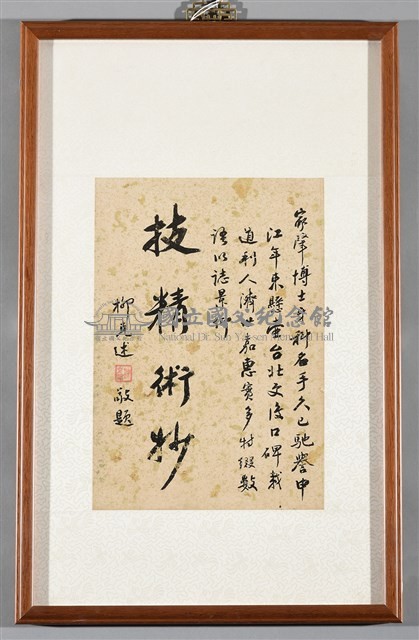 家肇博士科名手久已馳譽申
江年來縣壺台北口碑載
道利人濟嘉惠實多特綴數
語以誌景
技精術妙
柳克述敬題
國立國父紀念館
National Dr. Sun Yat-sen Memorial Hall